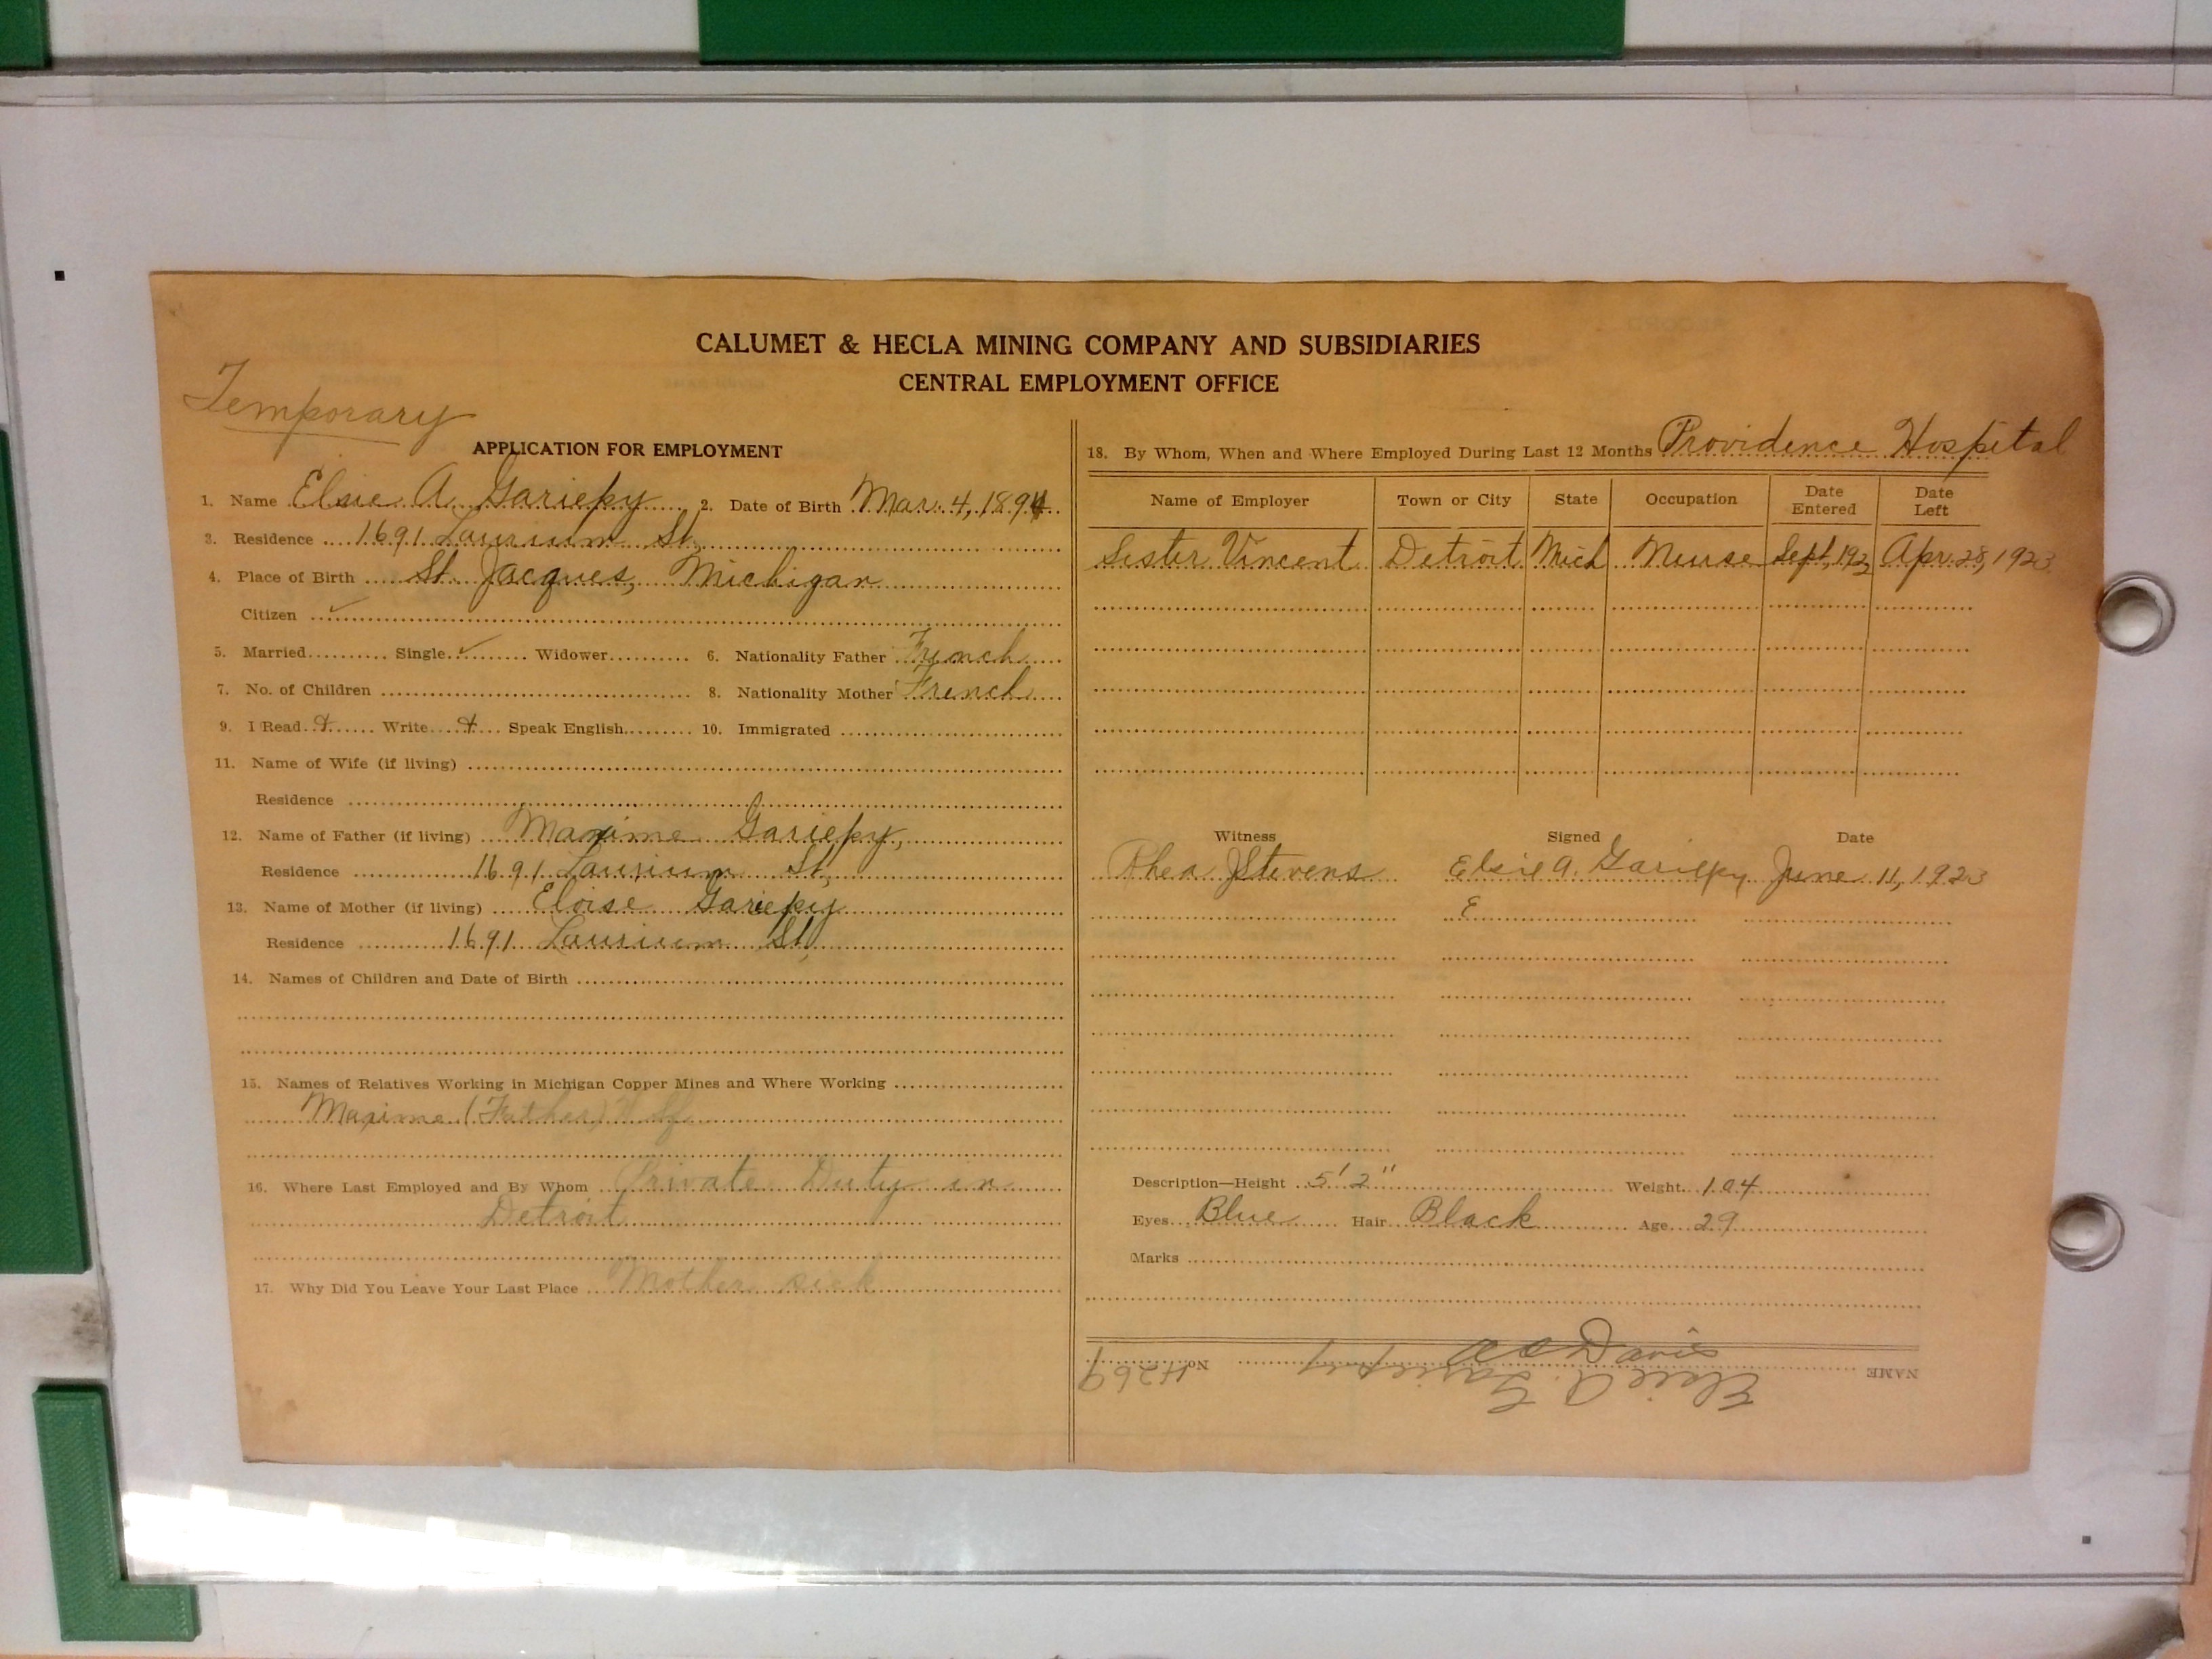 CALUMET & HECLA MINING COMPANY AND SUBSIDIARIES
CENTRAL EMPLOYMENT OFFICE
Temporary
APPLICATION FOR EMPLOYMENT
1. Name Elsie A. Gariepy 2. Date of Birth Mar. 4, 1894
3. Residence 1691 Laurium St.
4. Place of Birth St. Jacques, Michigan
Citizen ✓
5. Married Single ✓ Widower 6. Nationality Father French
7. No. of Children 8. Nationality Mother French
9. I Read + Write + Speak English 10. Immigrated
11. Name of Wife (if living)
Residence
12. Name of Father (if living) Maxime Gariepy,
Residence 1691 Laurium St,
13. Name of Mother (if living) Eloise Gariepy
Residence 1691 Laurium St,
14. Names of Children and Date of Birth
15. Names of Relatives Working in Michigan Copper Mines and Where Working
Maxime (Father)
16. Where Last Employed and By Whom Private Duty in
Detroit
17. Why Did You Leave Your Last Place Mother sick
18. By Whom, When and Where Employed During Last 12 Months Providence Hospital
Name of Employer Town or City State Occupation Date Entered Date Left
Sister Vincent Detroit Mich Nurse Sept, 1922 Apr. 28, 1923
Witness Signed Date
Rhea J Stevens Elsie A. Gariepy June 11, 1923
E
Description—Height 5' 2" Weight 104
Eyes Blue Hair Black Age 29
Marks
NAME Elsie A. Gariepy No. 4269
Davis